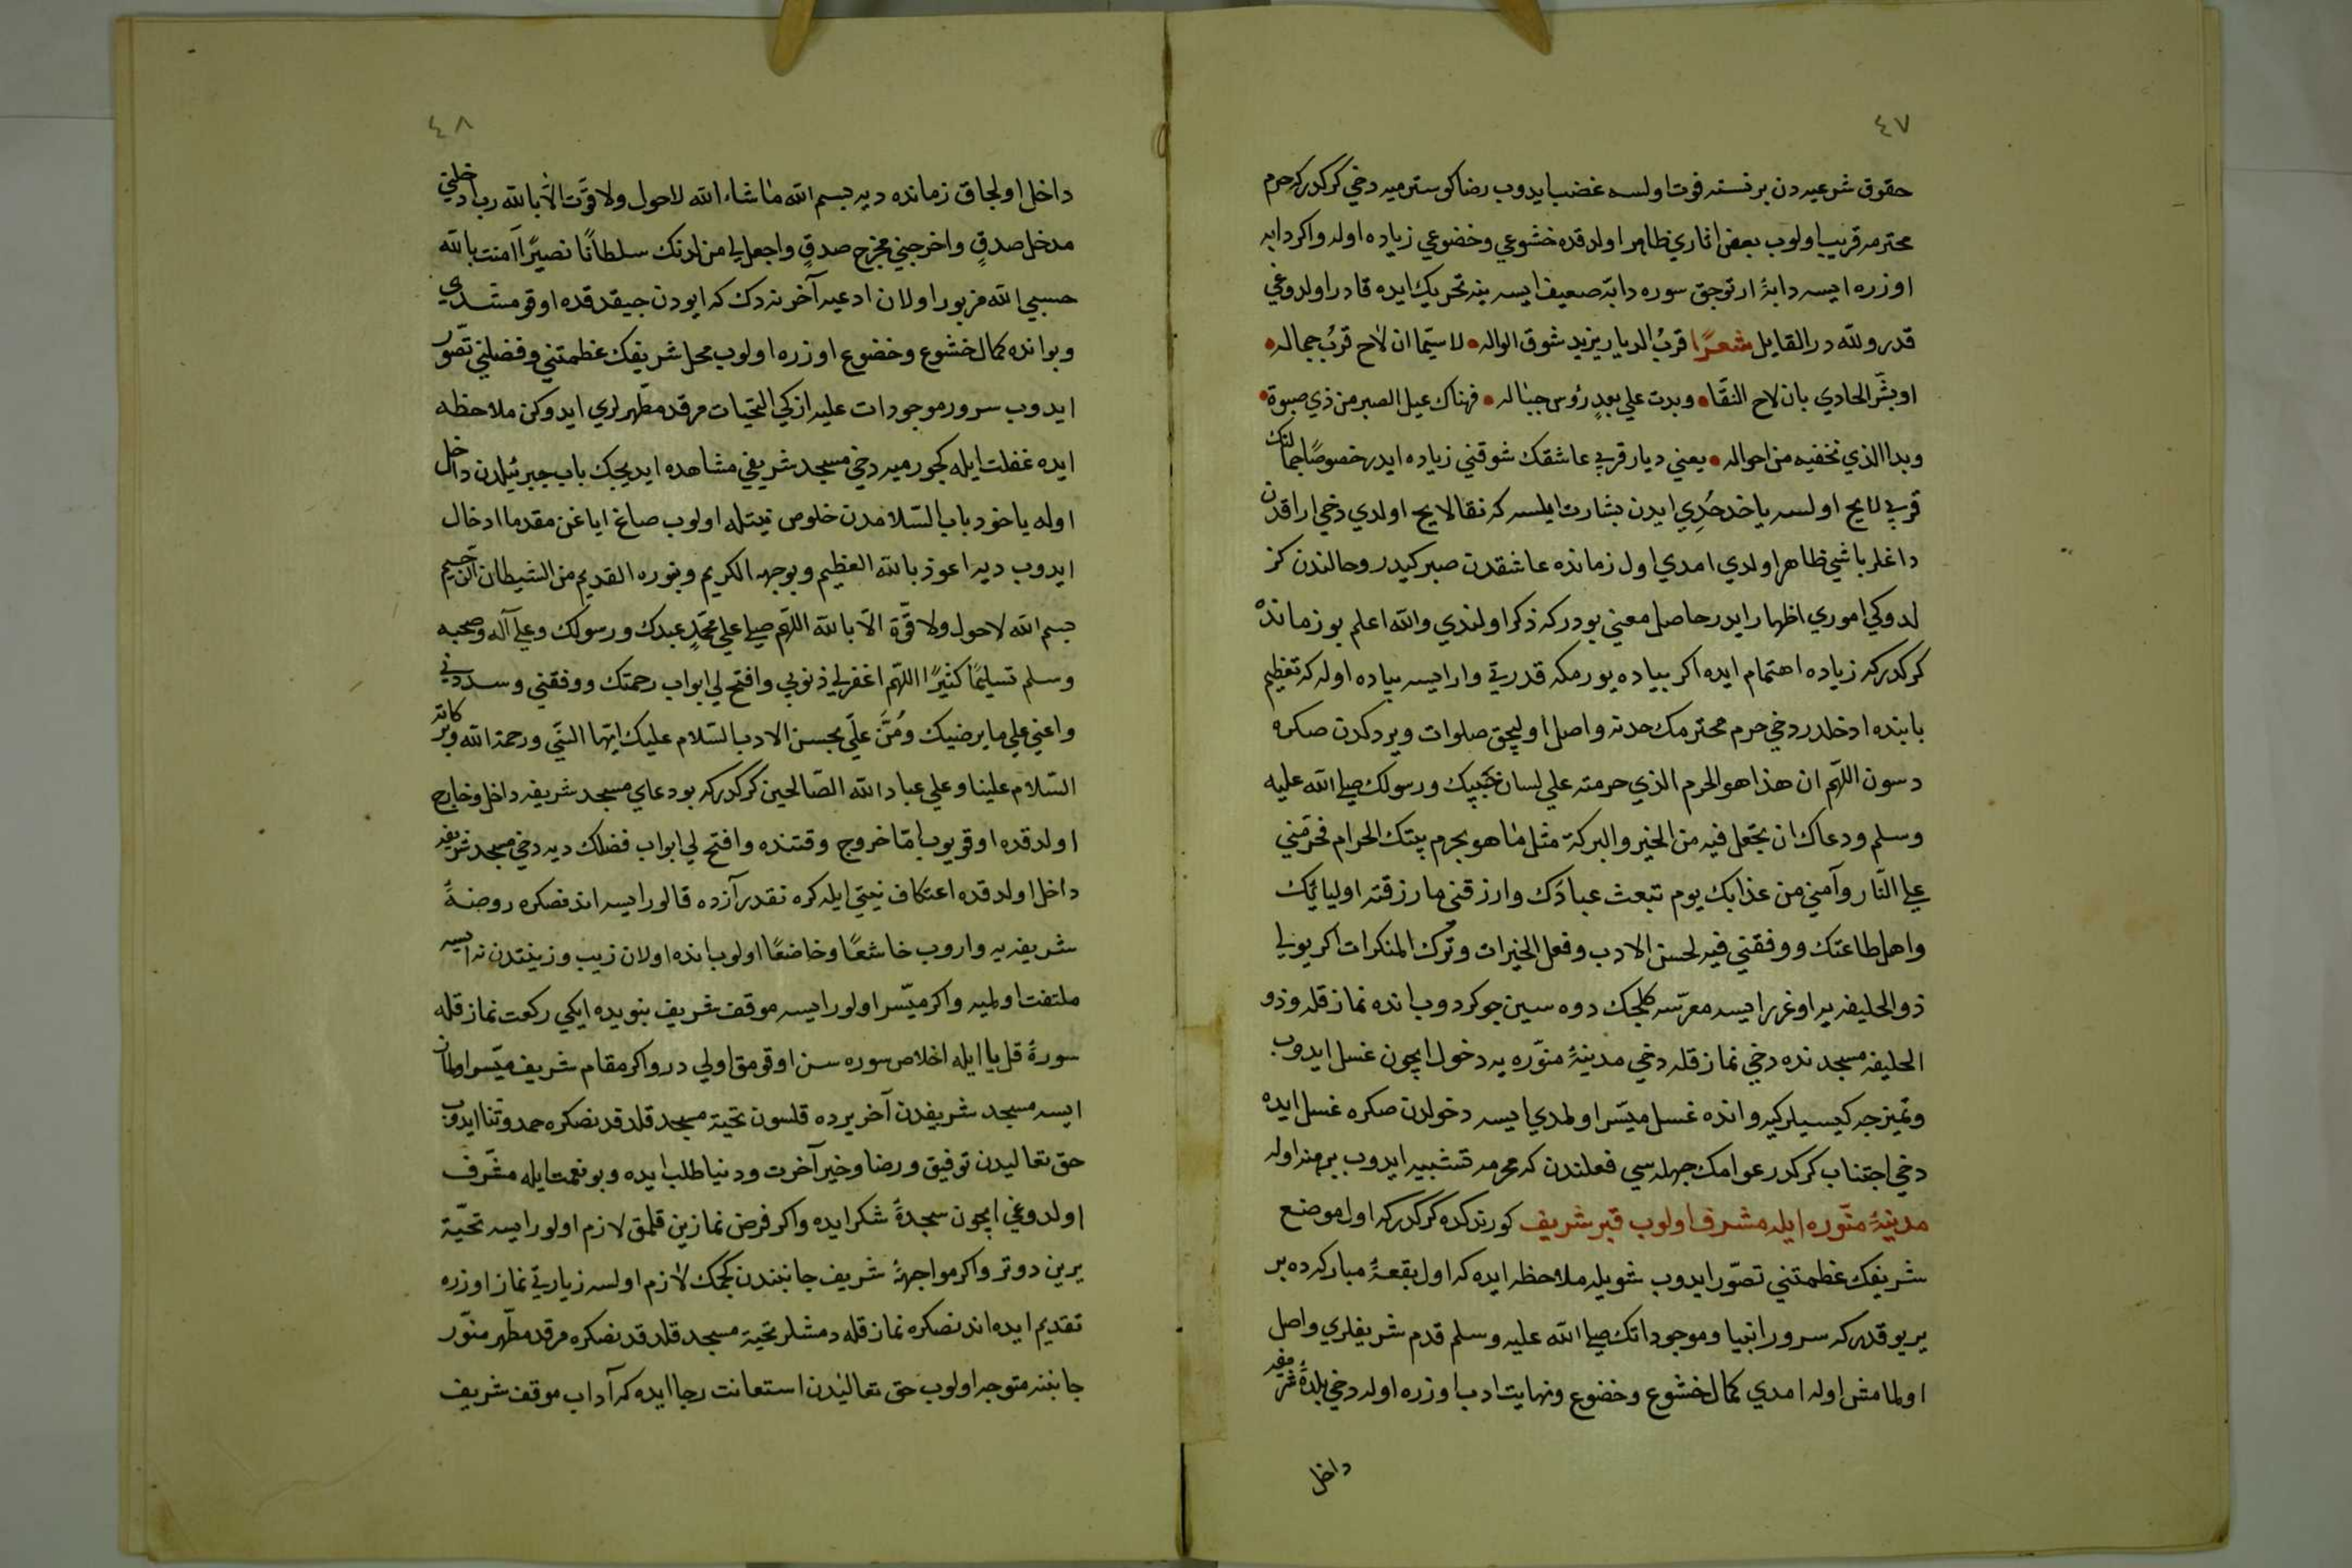 ٤٧
حقوق شرعيه دن بر نسنه فوت اولسه غضب ايدوب رضا كوسترميه دخي كركدركه حرم
محترمه قريب اولوب بعض اثاري ظاهر اولدقده خشوعي وخضوعي زياده اوله واكر دابه
اوزره ايسه دابهٔ ارتوجق سوره دابّه ضعيف ايسه ينه تحريك ايده قادر اولدوغي
قدر ولله در القايل شعرًا قربُ الديار يزيد شوق الواله • لا سيّما ان لاح قربُ جماله •
او بشّر الحادي بان لاح النقا • وبدت علي بعدٍ رؤس جباله • فهناك عيل الصبر من ذي صبوة •
وبدا الذي تخفيه من احواله • يعني ديار قربي عاشقك شوقني زياده ايدر خصوصًا جمالنك
قربي لايح اولسه ياخد حُدِي ايدن بشارت ايلسه كه نقا لايح اولدي دخي اراقدن
داغلر باشي ظاهر اولدي امدي اول زمانده عاشقدن صبر كيدر وحالندن كز
لدوكي اموري اظهار ايدر حاصل معني بودركه ذكر اولندي والله اعلم بو زمانده
كركدركه زياده اهتمام ايده اكر پياده يورمكه قدرتي وار ايسه پياده اوله كه تعظيم
بابنده ادخلدر دخي حرم محترمك حدنه واصل اوليجق صلوات ويردكدن صكره
دسون اللهّم ان هذا هو الحرم الذي حرمته علي لسان حَبيبِك ورسولك صلي الله عليه
وسلم ودعاك ان تجعل فيه من الخير والبركة مثل ما هو بحرم بيتك الحرام فحرّمني
علي النّار وآمني من عذابك يوم تبعث عبادَك وارزقني ما رزقته اوليائِك
واهل طاعتك ووفقني فيه لحسن الادب وفعل الخيرات وتَرْك المنكرات اكر يولي
ذو الحليفه يه اوغرر ايسه معرّسه كلجك دوه سين چوكردوب انده نماز قله وذو
الحليفه مسجدنده دخي نماز قله دخي مدينهٔ منوّره يه دخول ايچون غسل ايدوب
وتميزجه كيسيلر كيه وانده غسل ميسّر اولمدي ايسه دخولدن صكره غسل ايده
دخي اجتناب كركدر عوامك جهله سي فعلندن كه محرمه تشبيه ايدوب برهنه اوله
مدينهٔ منوّره ايله مشرف اولوب قبر شريف كورندكده كركدركه اول موضع
شريفك عظمتني تصوّر ايدوب شويله ملاحظه ايده كه اول بقعهٔ مباركه ده بر
ير يوقدركه سرور انبيا وموجوداتك صلي الله عليه وسلم قدم شريفلري واصل
اولمامش اوله امدي كمال خشوع وخضوع ونهايت ادب اوزره اوله دخي بلدهٔ شريفه
داخل
٤٨
داخل اولجاق زمانده ديه بسم الله ما شاء الله لا حول ولا قوّت الّا بالله رب ادخلني
مدخل صدقٍ واخرجني مخرج صدقٍ واجعل لي من لدنك سلطانًا نصيرًا آمنت بالله
حسبي الله مزبور اولان ادعيه آخرنه دك كه ايودن چيقدقده اوقومشدي
وبوانده كمال خشوع وخضوع اوزره اولوب محل شريفك عظمتني وفضلني تصوّر
ايدوب سرور موجودات عليه ازكي التحيّات مرقد مطهرلري ايدوكن ملاحظه
ايده غفلت ايله كچورميه دخي مسجد شريفي مشاهده ايديجك باب جبرئيلدن داخل
اوله ياخود باب السّلامدن خلوص نيتله اولوب صاغ اياغن مقدما ادخال
ايدوب ديه اعوذ بالله العظيم وبوجهه الكريم وبنوره القديم من الشيطان الرّجيم
بسم الله لا حول ولا قوّة الّا بالله اللهّم صلي علي محمّدٍ عبدك ورسولك وعلي آله وصحبه
وسلم تسليمًا كثيرًا اللهّم اغفر لي ذنوبي وافتح لي ابواب رحمتك ووفقني وسددني
واعني علي ما يرضيك ومُنَّ علَي بحسن الادب السّلام عليك ايّها النبّي ورحمة الله وبركاته
السّلام علينا وعلي عباد الله الصّالحين كركدركه بو دعاي مسجد شريفه داخل وخارج
اولدقده اوقويوب امّا خروج وقتنده وافتح لي ابواب فضلك ديه دخي مسجد شريفه
داخل اولدقده اعتكاف نيتي ايله كره نقدر آزده قالور ايسه اندنصكره روضهٔ
شريفه يه واروب خاشعًا وخاضعًا اولوب انده اولان زيب وزينتدن نه ايسه
ملتفت اولميه واكر ميّسر اولور ايسه موقف شريف بنويده ايكي ركعت نماز قله
سورهٔ قل يا ايله اخلاص سوره سن اوقومق اولي در واكر مقام شريف ميّسر اولمان
ايسه مسجد شريفدن آخر يرده قلسون تحيّة مسجد قلدقدنصكره حمد وثنا ايدوب
حق تعاليدن توفيق ورضا وخير آخرت ودنيا طلب ايده وبو نعمت ايله مشّرف
اولدوغي ايچون سجدهٔ شكر ايده واكر فرض نمازين قلمق لازم اولور ايسه تحيّة
يرين دوتر واكر مواجههٔ شريف جانبندن كچمك لازم اولسه زيارتي نماز اوزره
تقديم ايده اندنصكره نماز قله دمشلر تحيّة مسجد قلدقدنصكره مرقد مطّهر منوّر
جانبنه متوجه اولوب حق تعاليٰدن استعانت رجا ايده كه آداب موقف شريف